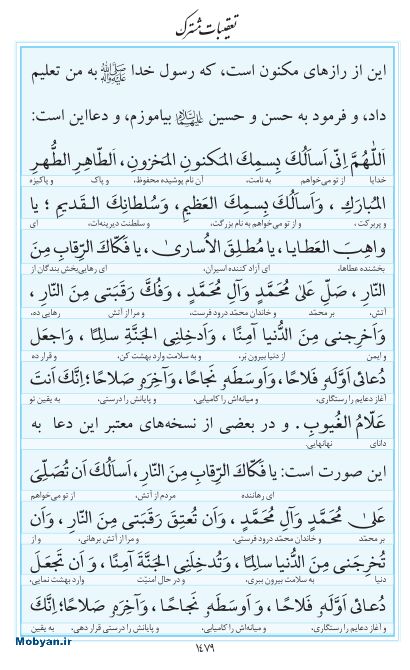 تعقیبات مشترک
این از رازهای مکنون است، که رسول خدا ﷺ به من تعلیم
داد، و فرمود به حسن و حسین علیهماالسلام بیاموزم، و دعااین است:
اَللّٰهُمَّ اِنّی اَسأَلُكَ بِسمِكَ المَكنونِ المَخزونِ، اَلطّاهِرِ الطُّهرِ
خدایا از تو می‌خواهم به نامت، آن نام پوشیده محفوظ، و پاک و پاکیزه
المُبارَكِ ، وَاَسأَلُكَ بِسمِكَ العَظیمِ، وَسُلطانِكَ القَدیمِ ؛ یا
و پربرکت ، و از تو می‌خواهم به نام بزرگت، و سلطنت دیرینه‌ات، ای
واهِبَ العَطایا، یا مُطلِقَ الاُساریٰ، یا فَكّاكَ الرِّقابِ مِنَ
بخشنده عطاها، ای آزاد کننده اسیران، ای رهایی‌بخش بندگان از
النّارِ ، صَلِّ عَلیٰ مُحَمَّدٍ وَآلِ مُحَمَّدٍ ، وَفُكَّ رَقَبَتی مِنَ النّارِ ،
آتش، بر محمّد و خاندان محمّد درود فرست، و مرا از آتش رهایی ده،
وَاَخرِجنی مِنَ الدُّنیا آمِنًا ، وَاَدخِلنِی الجَنَّةَ سالِمًا ، وَاجعَل
و ایمن از دنیا بیرون بَر، و به سلامت وارد بهشت کن، و قرار ده
دُعائی اَوَّلَهُ فَلاحًا، وَاَوسَطَهُ نَجاحًا، وَآخِرَهُ صَلاحًا؛ اِنَّكَ اَنتَ
آغاز دعایم را رستگاری، و میانه‌اش را کامیابی، و پایانش را درستی، به یقین تو
عَلّامُ الغُیوبِ . و در بعضی از نسخه‌های معتبر این دعا به
دانای نهانهایی.
این صورت است: یا فَكّاكَ الرِّقابِ مِنَ النّارِ، اَسأَلُكَ اَن تُصَلِّیَ
ای رهاننده مردم از آتش، از تو می‌خواهم
عَلیٰ مُحَمَّدٍ وَآلِ مُحَمَّدٍ ، وَاَن تُعتِقَ رَقَبَتی مِنَ النّارِ ، وَاَن
بر محمّد و خاندان محمّد درود فرستی، و مرا از آتش برهانی، و از
تُخرِجَنی مِنَ الدُّنیا سالِمًا ، وَتُدخِلَنِی الجَنَّةَ آمِنًا ، وَاَن تَجعَلَ
دنیا به سلامت بیرون ببری، و در حال امنیّت وارد بهشت نمایی،
دُعائی اَوَّلَهُ فَلاحًا ، وَ اَوسَطَهُ نَجاحًا ، وَآخِرَهُ صَلاحًا؛ اِنَّكَ
و آغاز دعایم را رستگاری، و میانه‌اش را کامیابی، و پایانش را درستی قرار دهی، به یقین
۱۴۷۹
Mobyan.ir